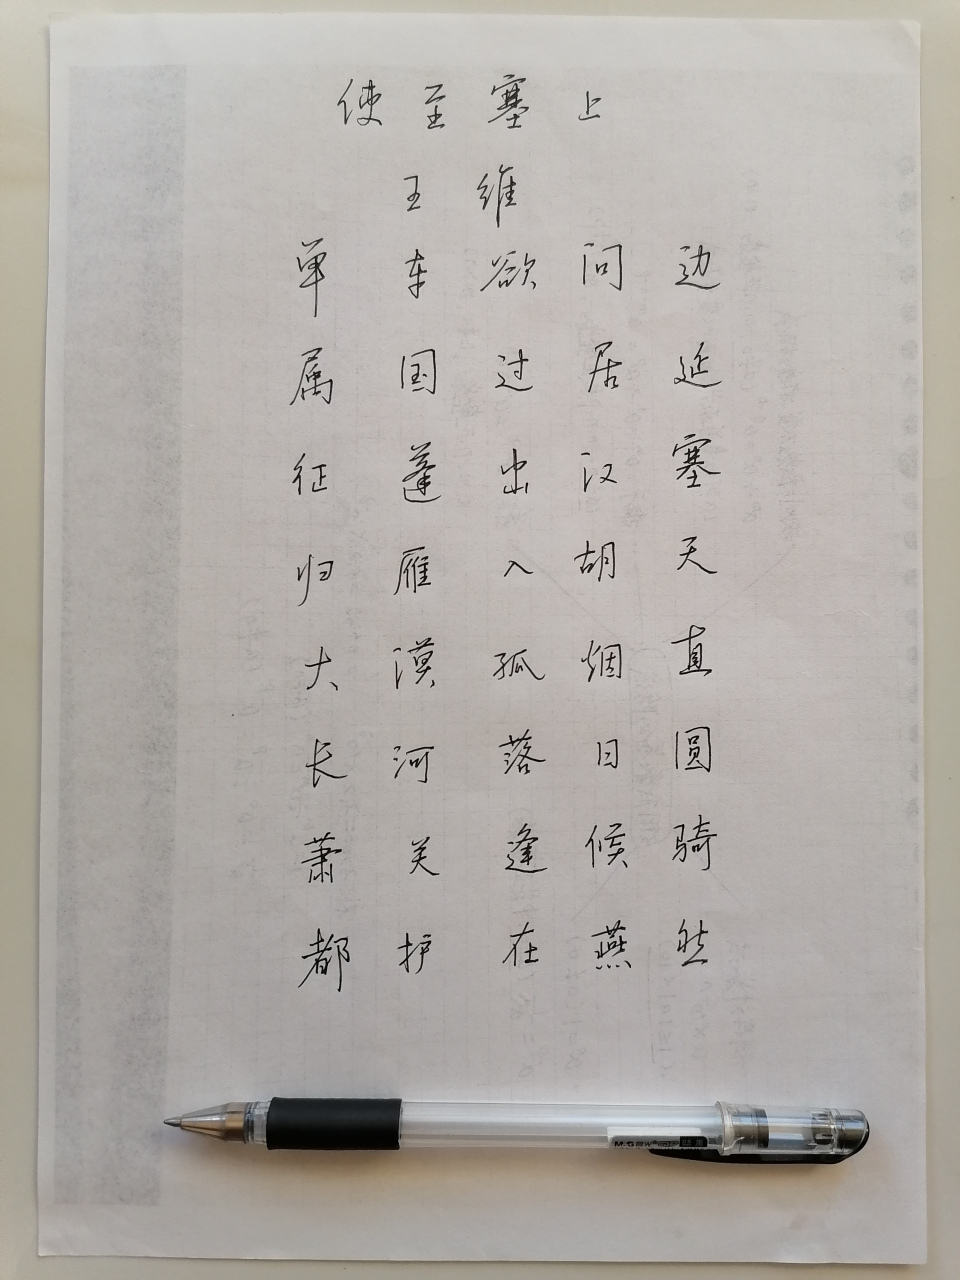 使至塞上
王维
单车欲问边
属国过居延
征蓬出汉塞
归雁入胡天
大漠孤烟直
长河落日圆
萧关逢候骑
都护在燕然
M&G